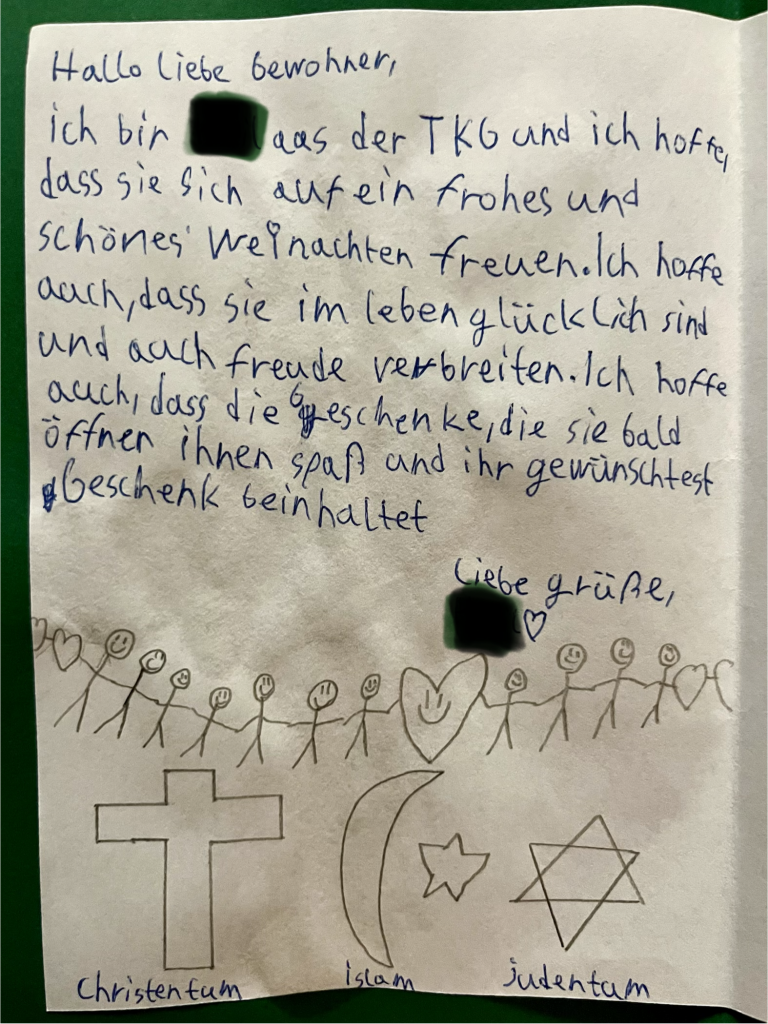 Hallo liebe bewohner,
ich bin aus der TKG und ich hoffe,
dass sie sich auf ein frohes und
schönes Weinachten freuen. Ich hoffe
auch, dass sie im leben glücklich sind
und auch freude verbreiten. Ich hoffe
auch, dass die Geschenke, die sie bald
öffnen ihnen spaß und ihr gewünschtest
Geschenk beinhaltet
Liebe grüße,
Christentum islam judentum